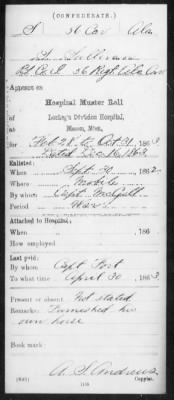 (CONFEDERATE.)
S 56 Cav Ala
Appears on
Hospital Muster Roll
Loring's Division Hospital,
Macon, Miss.,
for Feb 28 to Oct 31, 1863
dated Dec 16, 1863
Enlisted:
When Sept 30, 1862
Where Mobile
By whom Capt
Period War
Attached to Hospital:
When , 186
How employed
Last paid:
By whom Capt Fort
To what time April 30, 1863
Present or absent Not stated
Remarks: Furnished his
own horse
Book mark:
A. S. Andrews
Copyist.